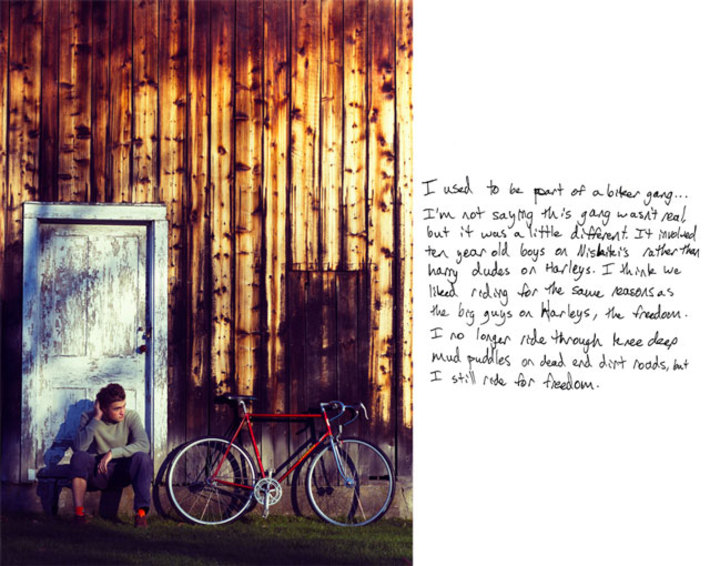 I used to be part of a biker gang...
I'm not saying this gang wasn't real,
but it was a little different. It involved
ten year old boys on Nishiki's rather than
harry dudes on Harleys. I think we
liked riding for the same reasons as
the big guys on Harleys, the freedom.
I no longer ride through knee deep
mud puddles on dead end dirt roads, but
I still ride for freedom.